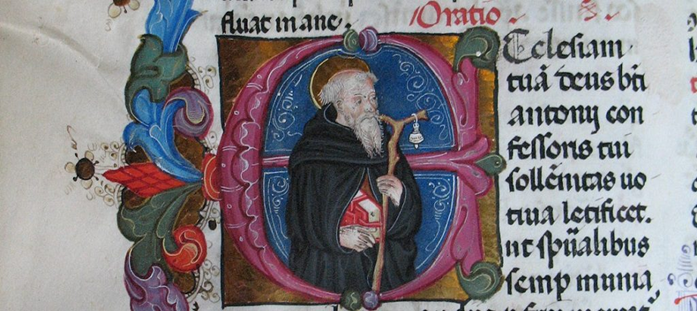 fluat in ane. Oratio
Ecclesiam
tuā deus bti
antonij con
fessoris tui
sollēnitas uo
tiua letificet.
ut spūalibus
semp munia